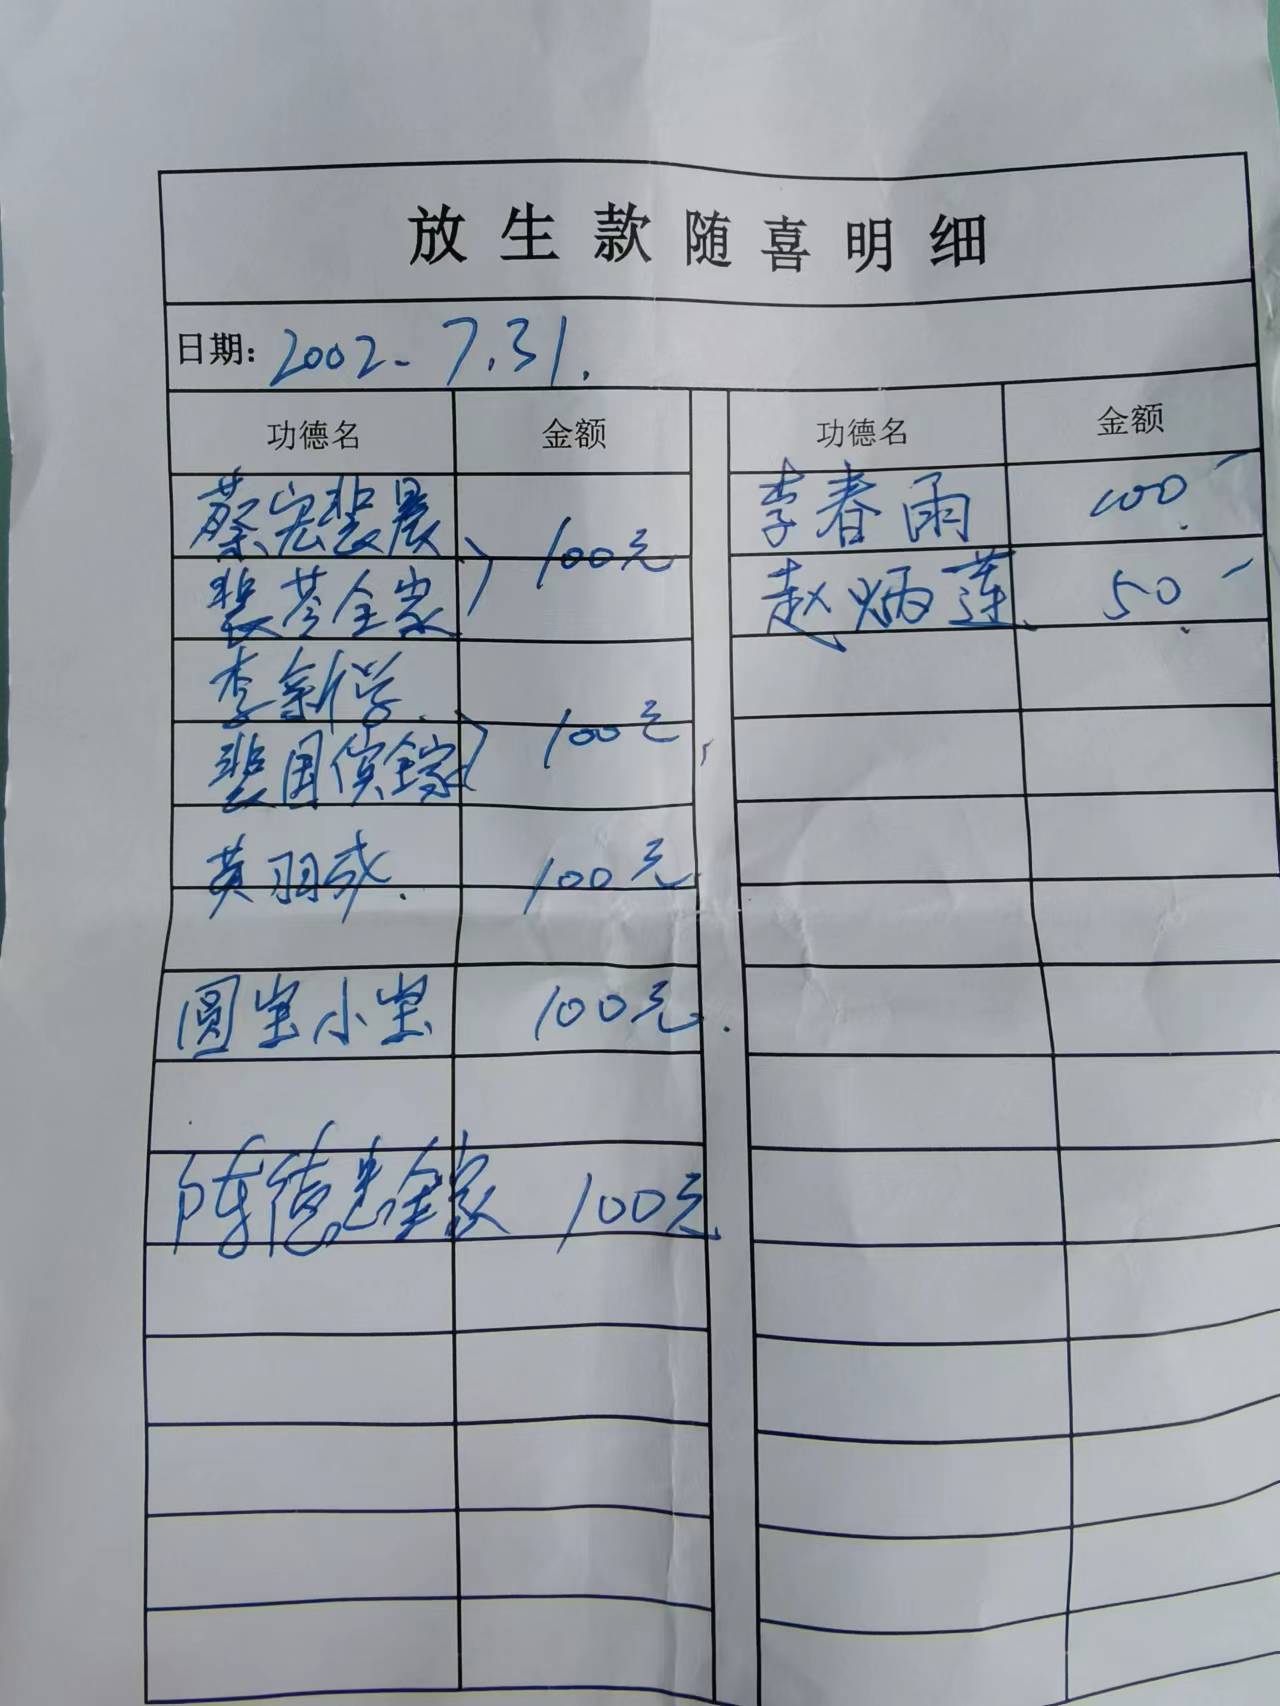 放生款随喜明细
日期: 2002-7.31.
功德名 金额 功德名 金额
蔡宏裴晨
裴芩全家 100元
李新学.
裴国侯全家 100元
黄羽成. 100元
圆宝小宝 100元.
陈德忠全家 100元
李春雨 100
赵炳莲 50